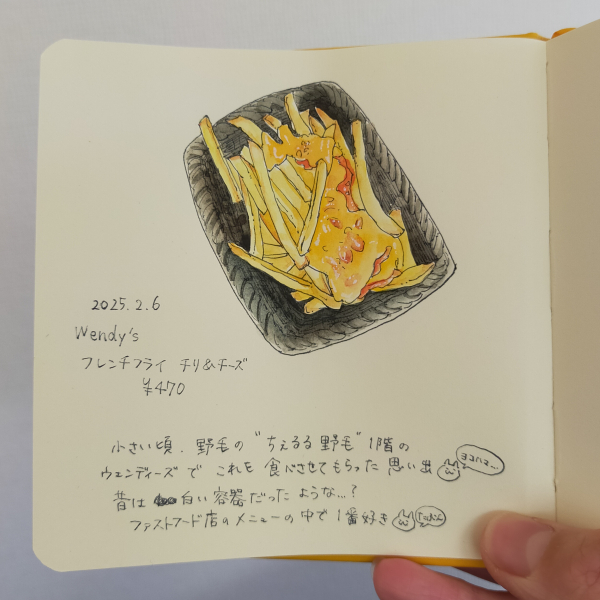 2025.2.6
Wendy's
フレンチフライ チリ&チーズ
¥470
小さい頃、野毛の"ちぇるる野毛"1階の
ウェンディーズで これを 食べさせてもらった 思い出
ヨコハマ…
昔は 白い容器だった ような…?
ファストフード店の メニューの中で 1番好き